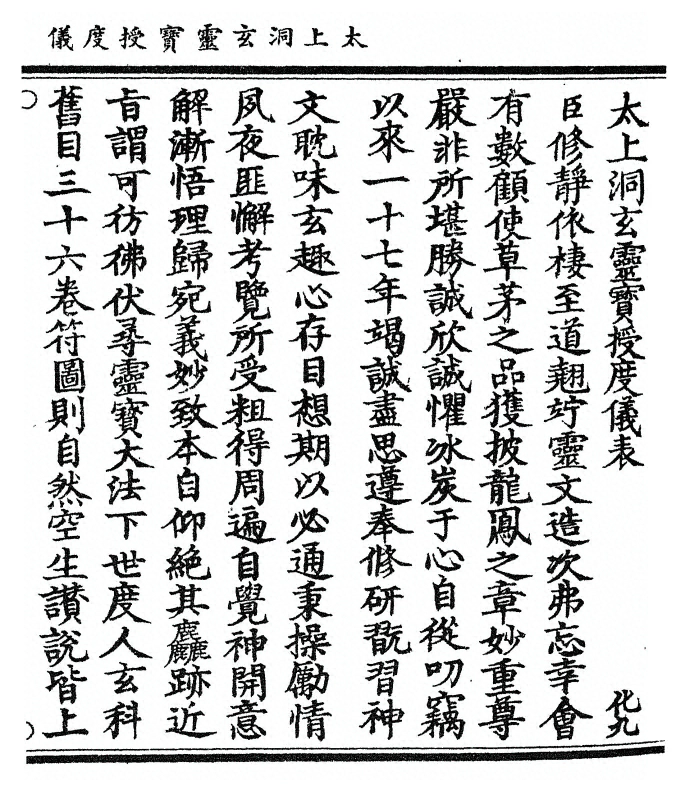 太上洞玄靈寶授度儀
太上洞玄靈寶授度儀表
化九
臣修靜依棲至道翹竚靈文造次弗忘幸會
有數顧使草茅之品獲披龍鳳之章妙重尊
嚴非所堪勝誠欣誠懼冰炭于心自從叨竊
以來一十七年竭誠盡思遵奉修研翫習神
文耽味玄趣心存目想期以必通秉操勵情
夙夜匪懈考覽所受粗得周遍自覺神開意
解漸悟理歸宛義妙致本自仰絶其麤跡近
旨謂可彷彿伏尋靈寶大法下世度人玄科
舊目三十六卷符圖則自然空生讚說皆上